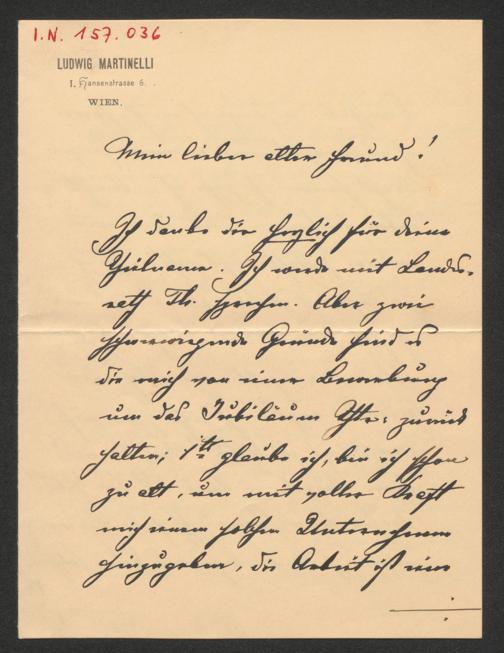 I.N. 157.036
LUDWIG MARTINELLI
I. Hansenstrasse 6.
WIEN.
Mein lieber alter Freund!
Ich danke dir herzlich für deine
Theilname. Ich werde mit Landes-
rath Th. sprechen. Aber zwei
schwerwiegende Gründe sind es
die mich von einer Bewerbung
um das Jubiläum Thtr: zurück
halten; 1tens glaube ich, bin ich schon
zu alt, um mit voller Kraft
mich einem solchen Unternehmen
hinzugeben, die Arbeit ist eine